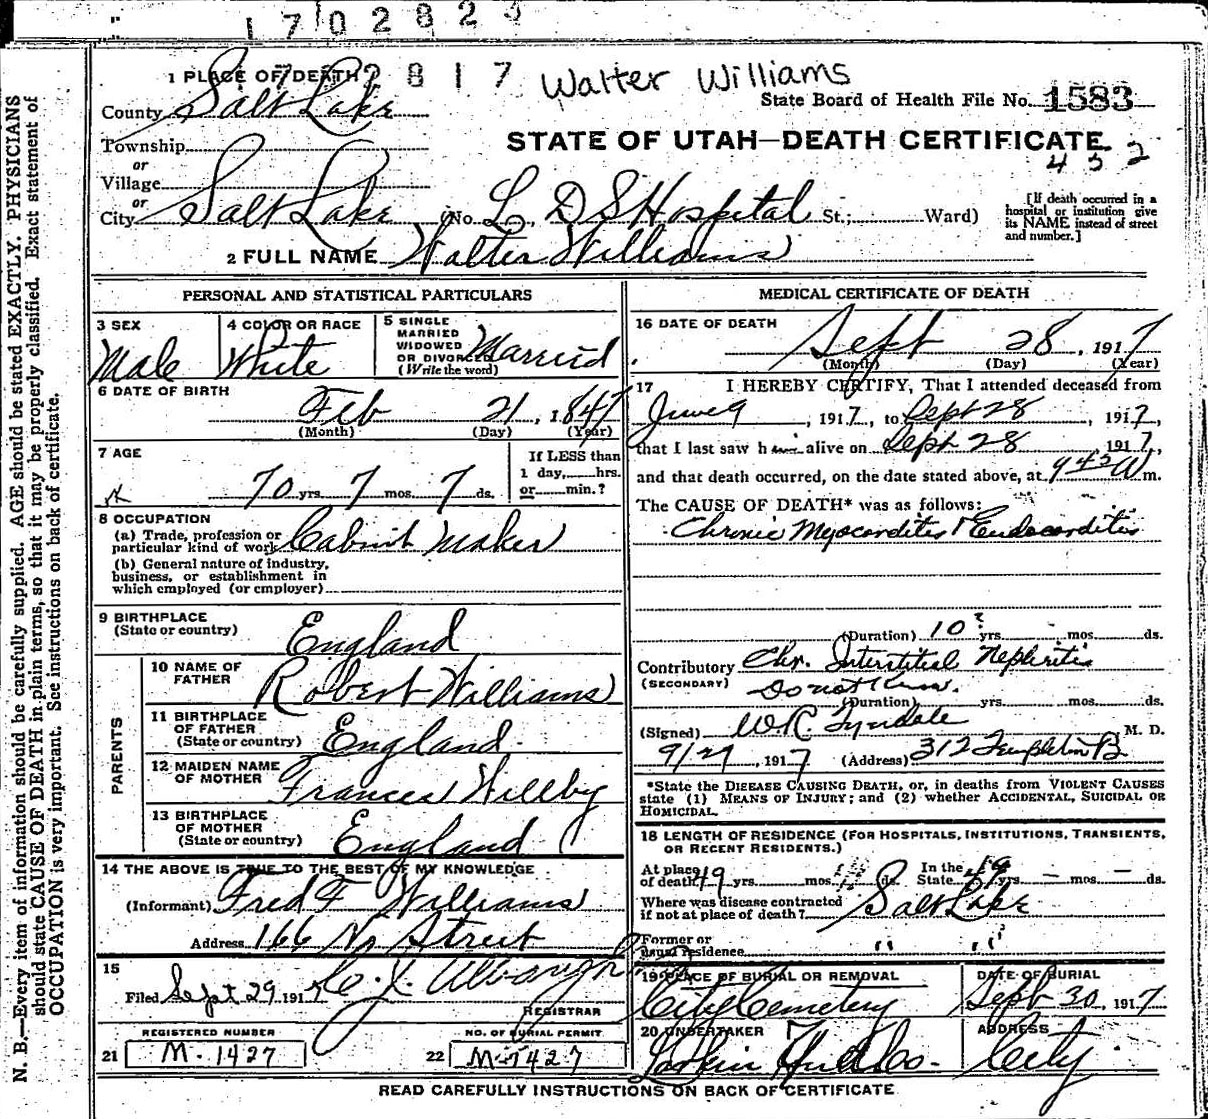 1702823
1 PLACE OF DEATH
817 Walter Williams
County Salt Lake
State Board of Health File No. 1583
Township
or
STATE OF UTAH—DEATH CERTIFICATE.
452
Village
or
City Salt Lake (No. L D S Hospital St.; Ward)
[If death occurred in a hospital or institution give its NAME instead of street and number.]
2 FULL NAME Walter Williams
PERSONAL AND STATISTICAL PARTICULARS
3 SEX Male
4 COLOR OR RACE White
5 SINGLE MARRIED WIDOWED OR DIVORCED (Write the word) Married
6 DATE OF BIRTH
Feb 21, 1847
(Month) (Day) (Year)
7 AGE
70 yrs 7 mos. 7 ds.
If LESS than
1 day, hrs.
or min.?
8 OCCUPATION
(a) Trade, profession or
particular kind of work Cabnit Maker
(b) General nature of industry,
business, or establishment in
which employed (or employer)
9 BIRTHPLACE
(State or country) England
PARENTS
10 NAME OF
FATHER Robert Williams
11 BIRTHPLACE
OF FATHER
(State or country) England
12 MAIDEN NAME
OF MOTHER Frances Willby
13 BIRTHPLACE
OF MOTHER
(State or country) England
14 THE ABOVE IS TRUE TO THE BEST OF MY KNOWLEDGE
(Informant) Fred F Williams
Address 166 N. Street
15
Filed Sept 29 1917
REGISTRAR
REGISTERED NUMBER
21 M-1427
NO. OF BURIAL PERMIT
22 M-1427
MEDICAL CERTIFICATE OF DEATH
16 DATE OF DEATH
Sept 28, 1917
(Month) (Day) (Year)
17 I HEREBY CERTIFY, That I attended deceased from
June 9, 1917, to Sept 28, 1917,
that I last saw him alive on Sept 28 1917,
and that death occurred, on the date stated above, at 9 45 m.
The CAUSE OF DEATH* was as follows:
Chronic Myocorditis + Endocorditis
(Duration) 10? yrs. mos. ds.
Contributory Chr. Interstitial Nephritis
(SECONDARY) Do not know.
(Duration) yrs. mos. ds.
(Signed) W.R. Tyndale M. D.
9/29, 1917 (Address) 312 Templeton B
*State the DISEASE CAUSING DEATH, or, in deaths from VIOLENT CAUSES
state (1) MEANS OF INJURY; and (2) whether ACCIDENTAL, SUICIDAL OR
HOMICIDAL.
18 LENGTH OF RESIDENCE (FOR HOSPITALS, INSTITUTIONS, TRANSIENTS,
OR RECENT RESIDENTS.)
At place
of death 19 yrs. mos. ds. In the State yrs. — mos. — ds.
Where was disease contracted
if not at place of death? Salt Lake
Former or
usual residence " "
19 PLACE OF BURIAL OR REMOVAL
City Cemetery
DATE OF BURIAL
Sept 30, 1917
20 UNDERTAKER
ADDRESS
City
READ CAREFULLY INSTRUCTIONS ON BACK OF CERTIFICATE
N. B.—Every item of information should be carefully supplied. AGE should be stated EXACTLY. PHYSICIANS
should state CAUSE OF DEATH in plain terms, so that it may be properly classified. Exact statement of
OCCUPATION is very important. See instructions on back of certificate.